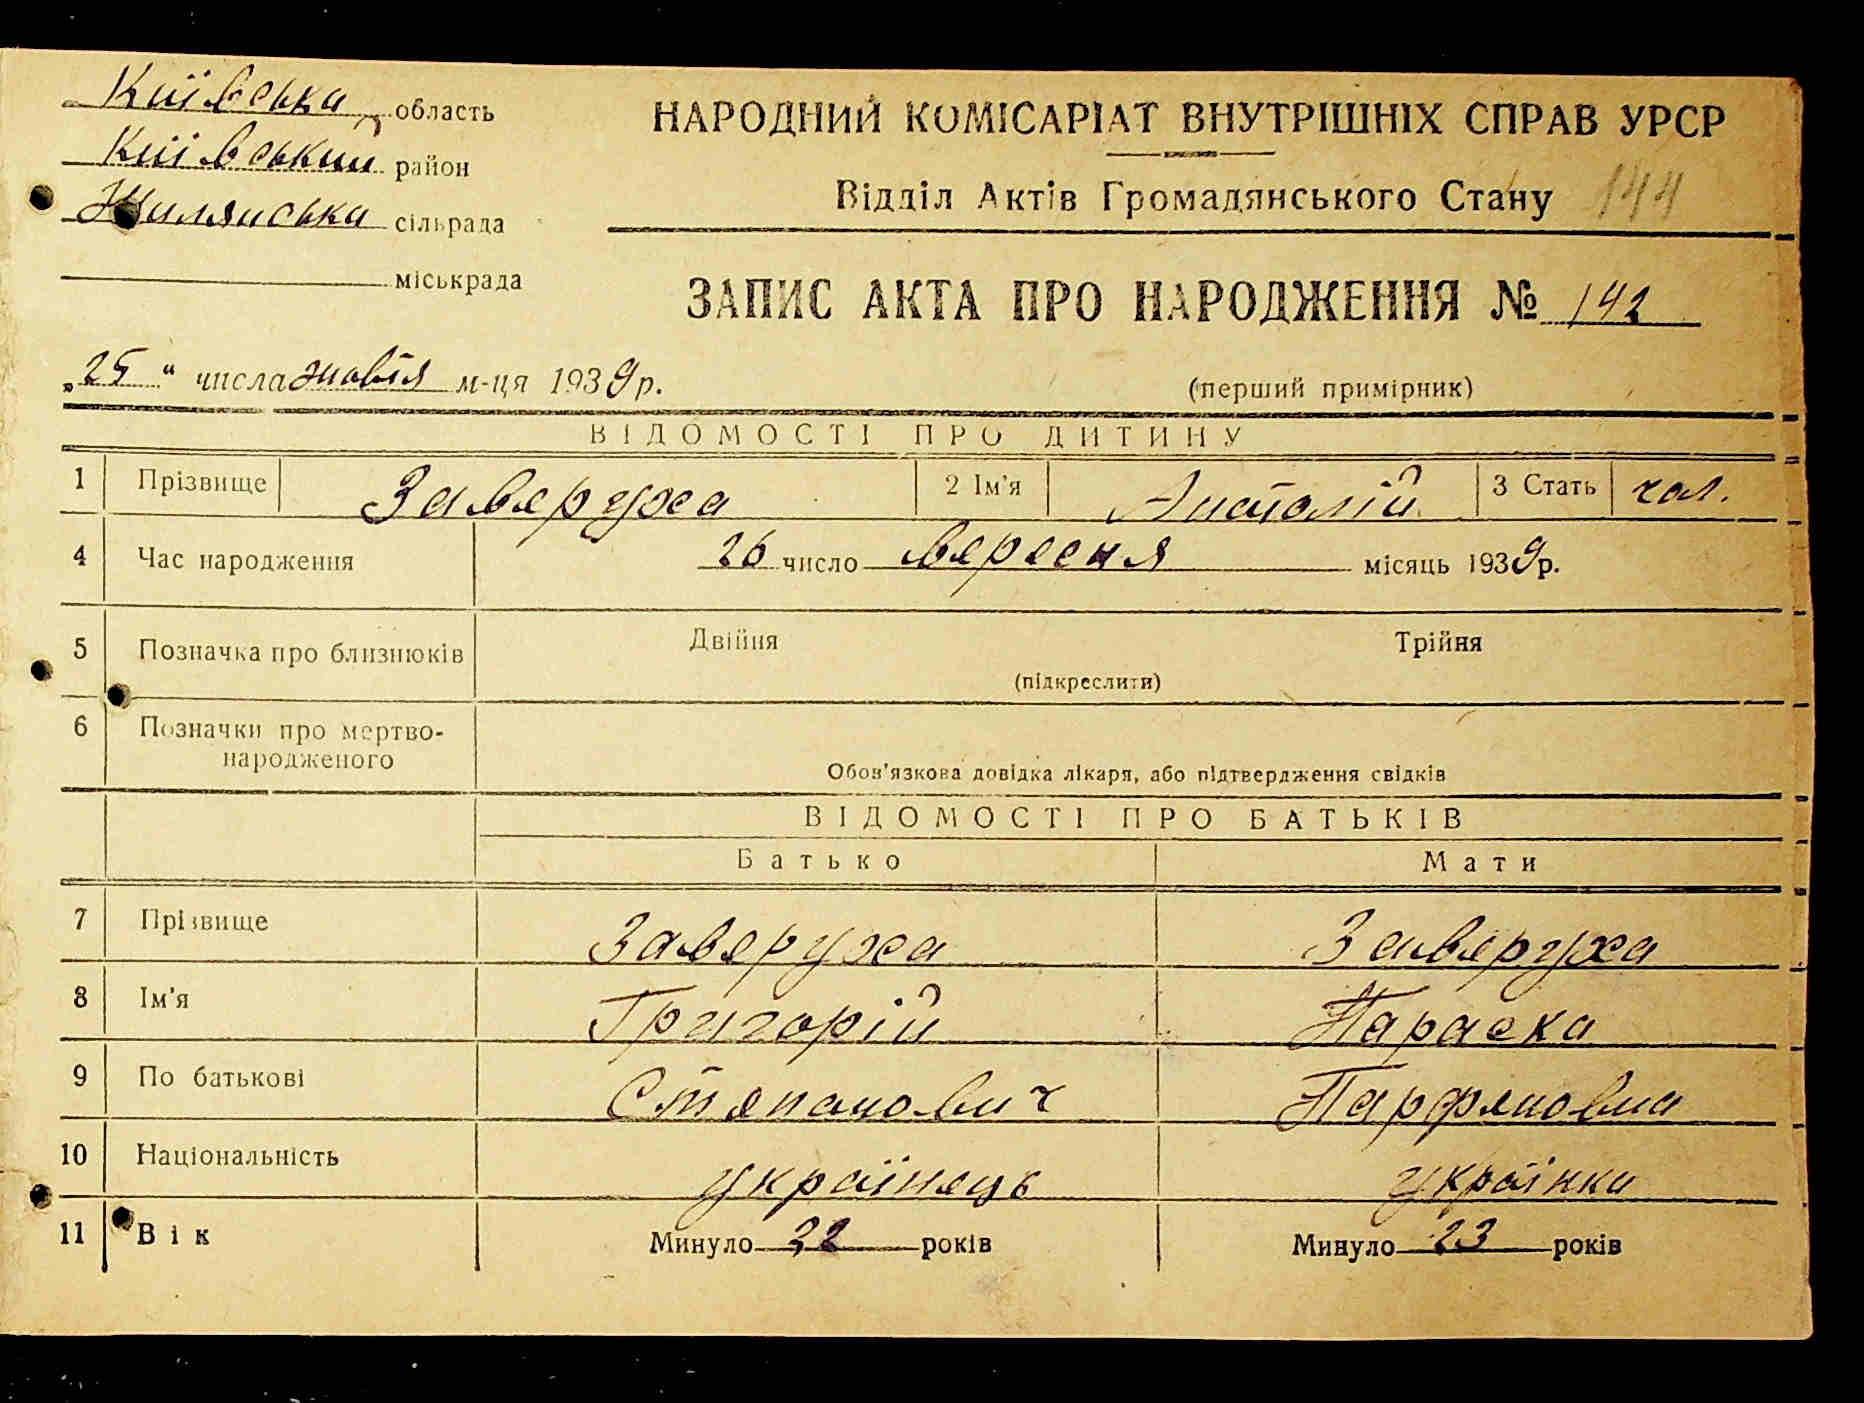 Київська область
Київський район
Жилянська сільрада
міськрада
НАРОДНИЙ КОМІСАРІАТ ВНУТРІШНІХ СПРАВ УРСР
Відділ Актів Громадянського Стану 144
ЗАПИС АКТА ПРО НАРОДЖЕННЯ № 142
„25“ числа жовтня м-ця 1939 р.
(перший примірник)
ВІДОМОСТІ ПРО ДИТИНУ
1 Прізвище Заверуха 2 Ім'я Анатолій 3 Стать чол.
4 Час народження 26 число вересня місяць 1939 р.
5 Позначка про близнюків Двійня Трійня
(підкреслити)
6 Позначки про мертво-
народженого
Обов'язкова довідка лікаря, або підтвердження свідків
ВІДОМОСТІ ПРО БАТЬКІВ
Батько Мати
7 Прізвище Заверуха Заверуха
8 Ім'я Григорій Параска
9 По батькові Степанович Парфеновна
10 Національність українець українка
11 Вік Минуло 22 років Минуло 23 років